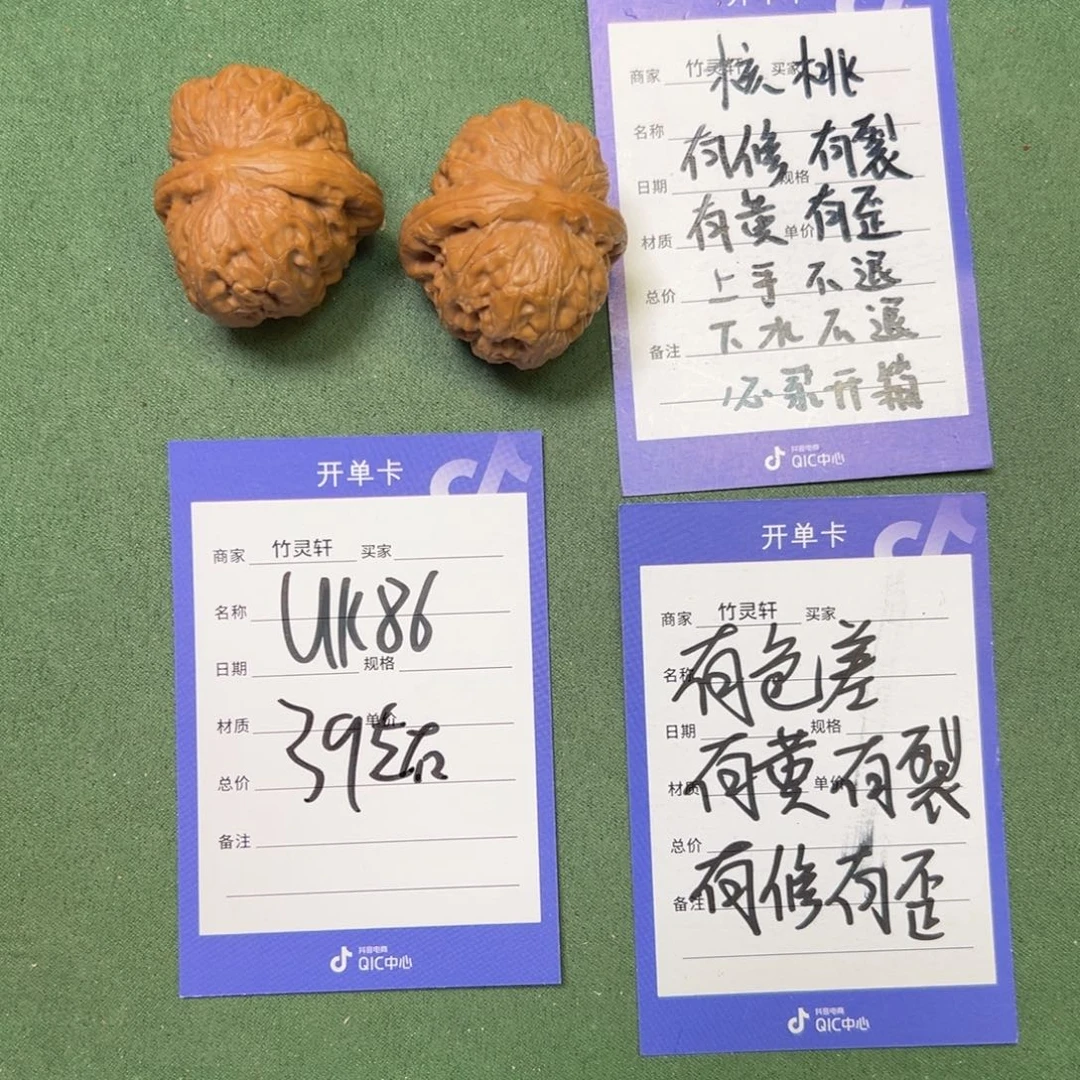 开单卡
商家 竹灵轩 买家
核桃
名称
有修 有裂
日期 规格
有黄 有歪
材质 单价
上手 不退
总价
下水不退
备注
必录开箱
抖音电商
QIC中心
开单卡
商家 竹灵轩 买家
名称
UK86
日期 规格
材质 单价
39结
总价
备注
抖音电商
QIC中心
开单卡
商家 竹灵轩 买家
名称
有色差
日期 规格
材质 单价
有黄有裂
总价
备注
有修有歪
抖音电商
QIC中心